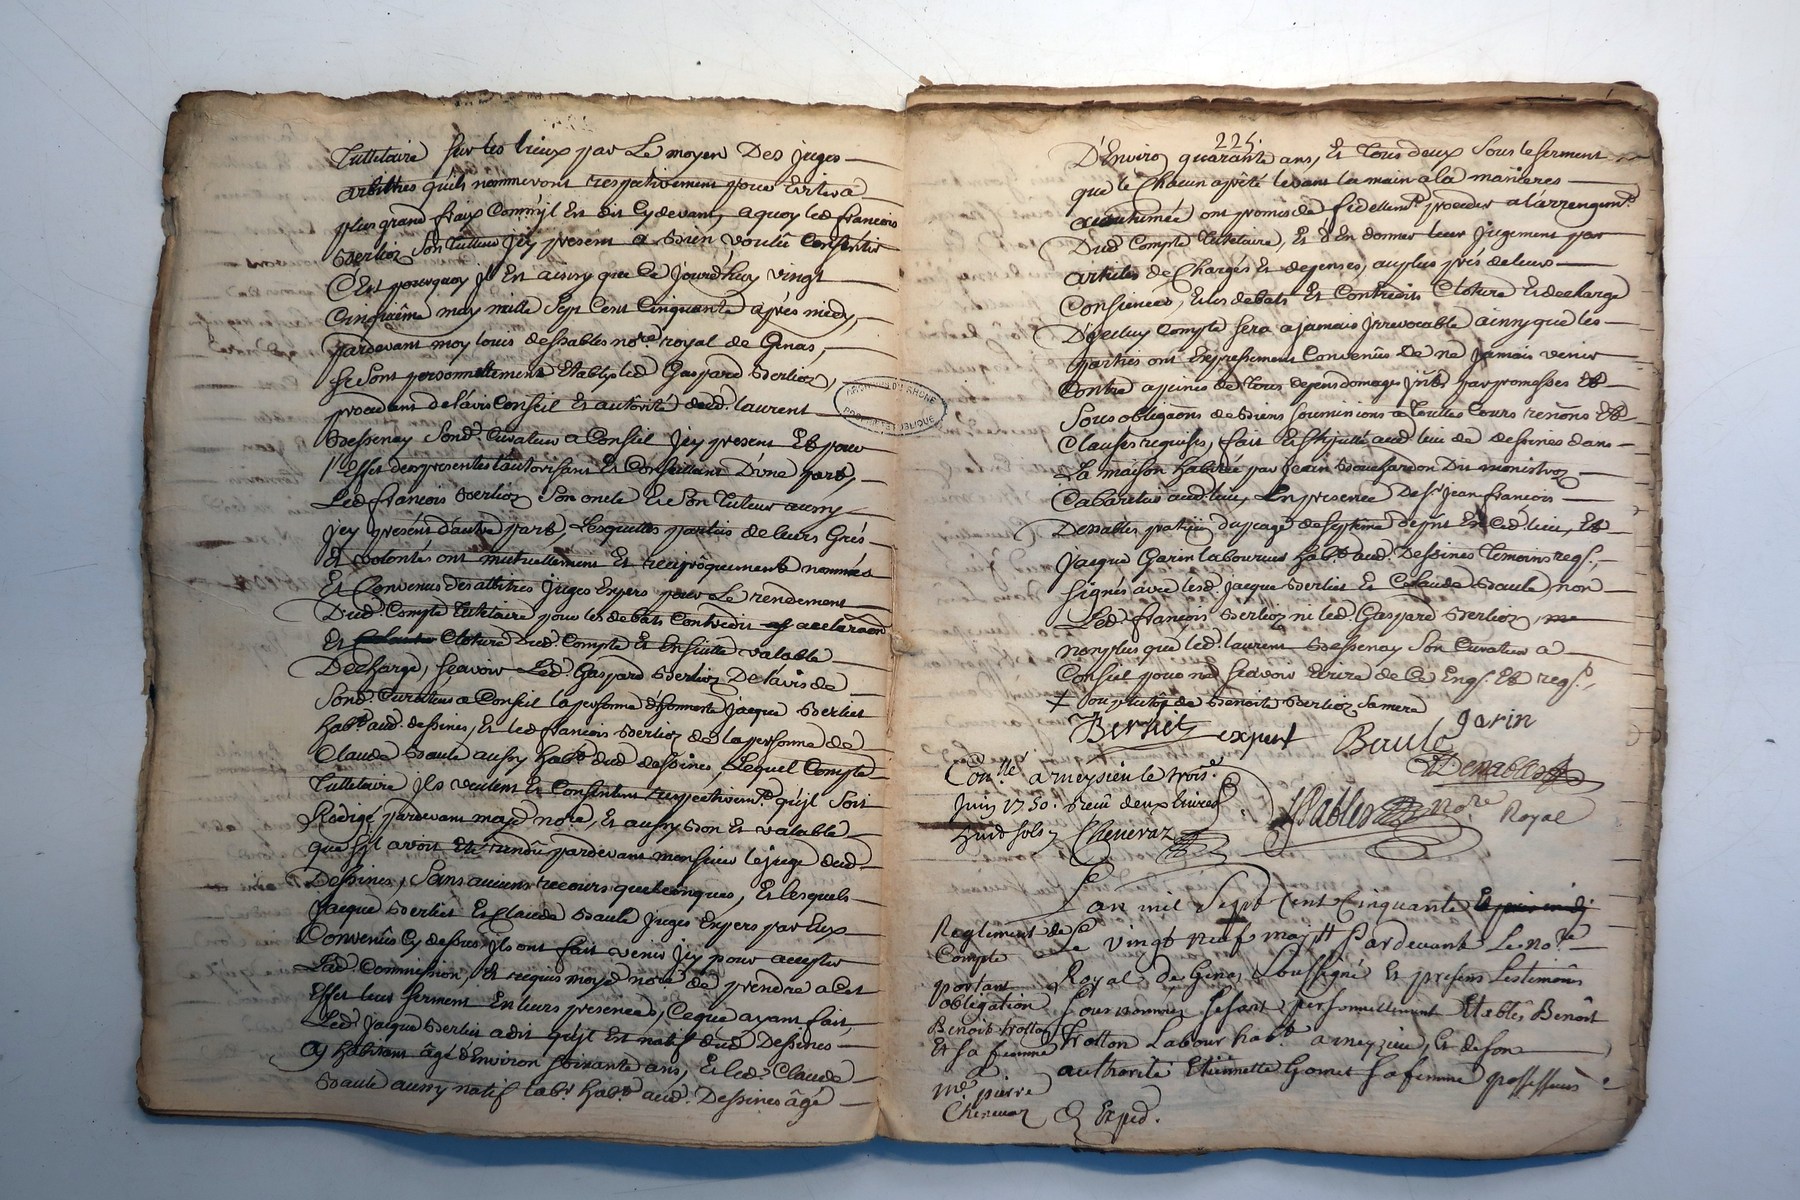 Tuttelaire sur les lieux par Le moyen Des juges
arbitres quils nommeront respectivement pour Eviter a
plus grand fraix Comm'jl Est dit Cy devant, a quoy led françois
Berlioz Son tutteur jcy present a Bien voulû Consentir
C'Est pourquoy jl Est ainsy que Ce jourd'huy vingt
Cinquiême may mille Sept Cent Cinquante après midy,
Pardevant moy louis dessables not.re royal de Genas,
Se Sont personnellement Etablys led Gaspard Berlioz,
procedant de l'avis Conseil Et autorité dud. laurent
Bessenay Sond. Curateur a Conseil jcy present Et pour
l'Effet des presentes l'autorisant Et Conseillant D'une part,
Led françois Berlioz Son oncle Et Son Tuteur aussy
jcy present d'autre part, Lesquelles parties de leurs Grés
Et volontés ont mutuellement Et reciprôquement nommés
Et Convenus des arbitres juges Expers pour Le rendement
Dud. Compte Tutelaire pour les debats Contredit
Et Clôture Dud. Compte Et Ensuitte valable
Decharge, Scavoir Led. Gaspard Berlioz De lavis de
Sond. Curateur a Conseil la personne d'honneste jacque Berliet
hab.t aud. dessines, Et led françois Berlioz de la personne de
Claude Baule aussy hab.t dud dessines, Lequel Compte
Tuttelaire jls veulent Et Consentent respectivem.t qu'jl Soit
Rédigé pardevant moyd not.re, Et aussy Bon Et valable
que s'jl avoit Eté rendû pardevant monsieur le juge dud
Dessines, Sans aucuns recours quelconques, Et lesquels
jacque Berliet Et Claude Baule juges Expers par Eux
Convenûs Cy dessus, jls ont fait venir jcy pour accepter
Lad. Commission, Et requis moyd not.re de prendre a Cet
Effet leur serment En leurs presences, Ce que ayant fait,
Led. jacque Berliet a dit qu'jl Est natif dud Dessines
Y habitant âgé d'Environ soixante ans, Et led. Claude
Baule aussy natif lab.r hab.t aud. Dessines âgé
225.
D'Environ quarante ans, Et Tous deux Sous le serment
que le Chacun a prêté levant la main a la maniere
accoutumée ont promis de fidellem.t proceder a l'arrengem.t
Dud Compte Tutelaire, Et d'En donner leur jugement par
articles de Charges Et depenses, au plus près de leurs
Consiences, Et les debats Et Contredits Cloture Et decharge
D'jceluy Compte sera a jamais jrrevocable ainsy que les
parties ont Expressement Convenûs De ne jamais venir
Contre a peines de Tous depens domages jntts par promesses Et
Sous obligaons de Biens soumissions a Touttes Cours renons Et
Clauses requises, fait Et Stipulé aud. lieu de dessines dans
La maison habitée par jean Bouchardon Dit monistroz
Cabaretier aud. lieu, En presence De S.r jean françois
Dessables paticien du peage de septeme depnt En Ced. lieu, Et
jacque Garin laboureur hab.t aud. Dessines Temoins req.s,
signés avec lesd. jacque Berliet Et Claude Baule, non
Led. françois Berlioz ni led. Gaspard Berlioz,
non plus que led. laurent Bessenay Son Curateur a
Conseil pour ne Scavoir Ecrire de Ce Enq.s Et req.s,
+ Benoite Berlioz Sa mere
Berliet expert Baule garin
Denables
Con.lle a meysieu le trois.e
Juin 1750. Receu deux livres
huit sols Cheneraz
Dessables no.re Royal
Lan mil Sept Cent Cinquante
Le vingt neuf maj Pardevant Le no.re
Royal de Genas Soussigné Et presens Les temoins
Sous nommés se sont personnellement Etablis Benoit
trotton Labour hab.t a meyzieu, Et de son
authorité Etiennette Gomet sa femme possesseurs
Reglement de
Compte
portant
obligation
Benoit trotton
Et sa femme
M.e pierre
Cheneraz
Exped.